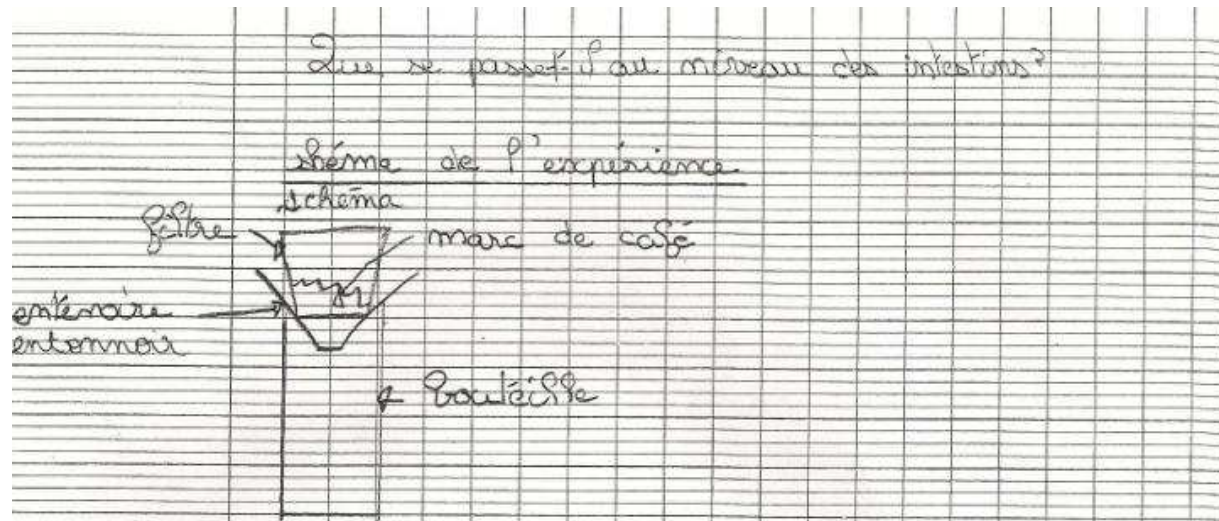 Que se passet-il au niveau des intestins?
shéma de l'expérience
schéma
filtre
marc de café
entenoire
entonnoir
boutéille